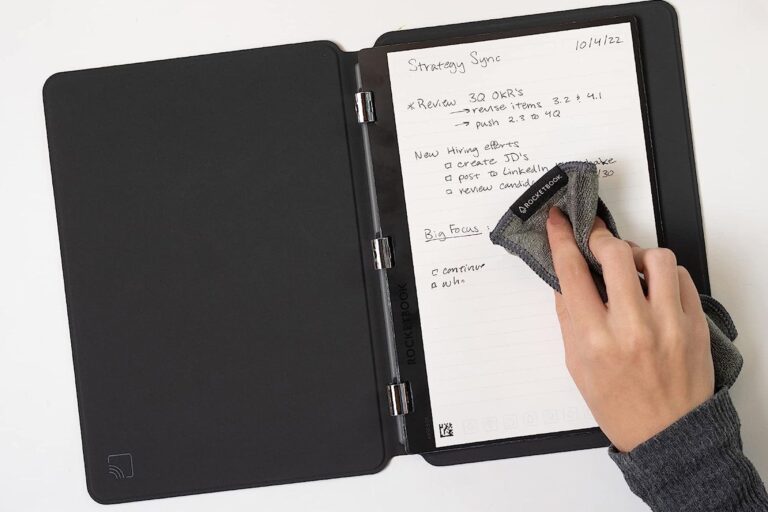 Strategy Sync
10/4/22
* Review 3Q OKR's
→ reuse items 3.2 + 4.1
→ push 2.3 to 4Q
New Hiring efforts
□ create JD's
□ post to LinkedIn
□ review candid
/30
Big Focus :
□ continu
□ wh
ROCKETBOOK
ROCKETBOOK